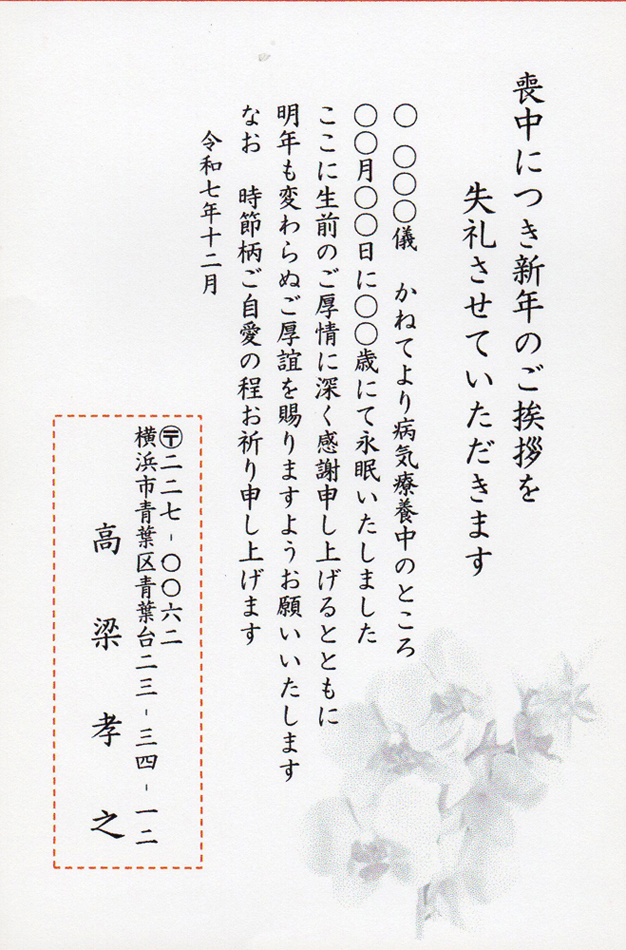 喪中につき新年のご挨拶を
失礼させていただきます
〇 〇〇〇儀 かねてより病気療養中のところ
〇〇月〇〇日に〇〇歳にて永眠いたしました
ここに生前のご厚情に深く感謝申し上げるとともに
明年も変わらぬご厚誼を賜りますようお願いいたします
なお 時節柄ご自愛の程お祈り申し上げます
令和七年十二月
〒二二七-〇〇六二
横浜市青葉区青葉台二三-三四-一二
高梁孝之